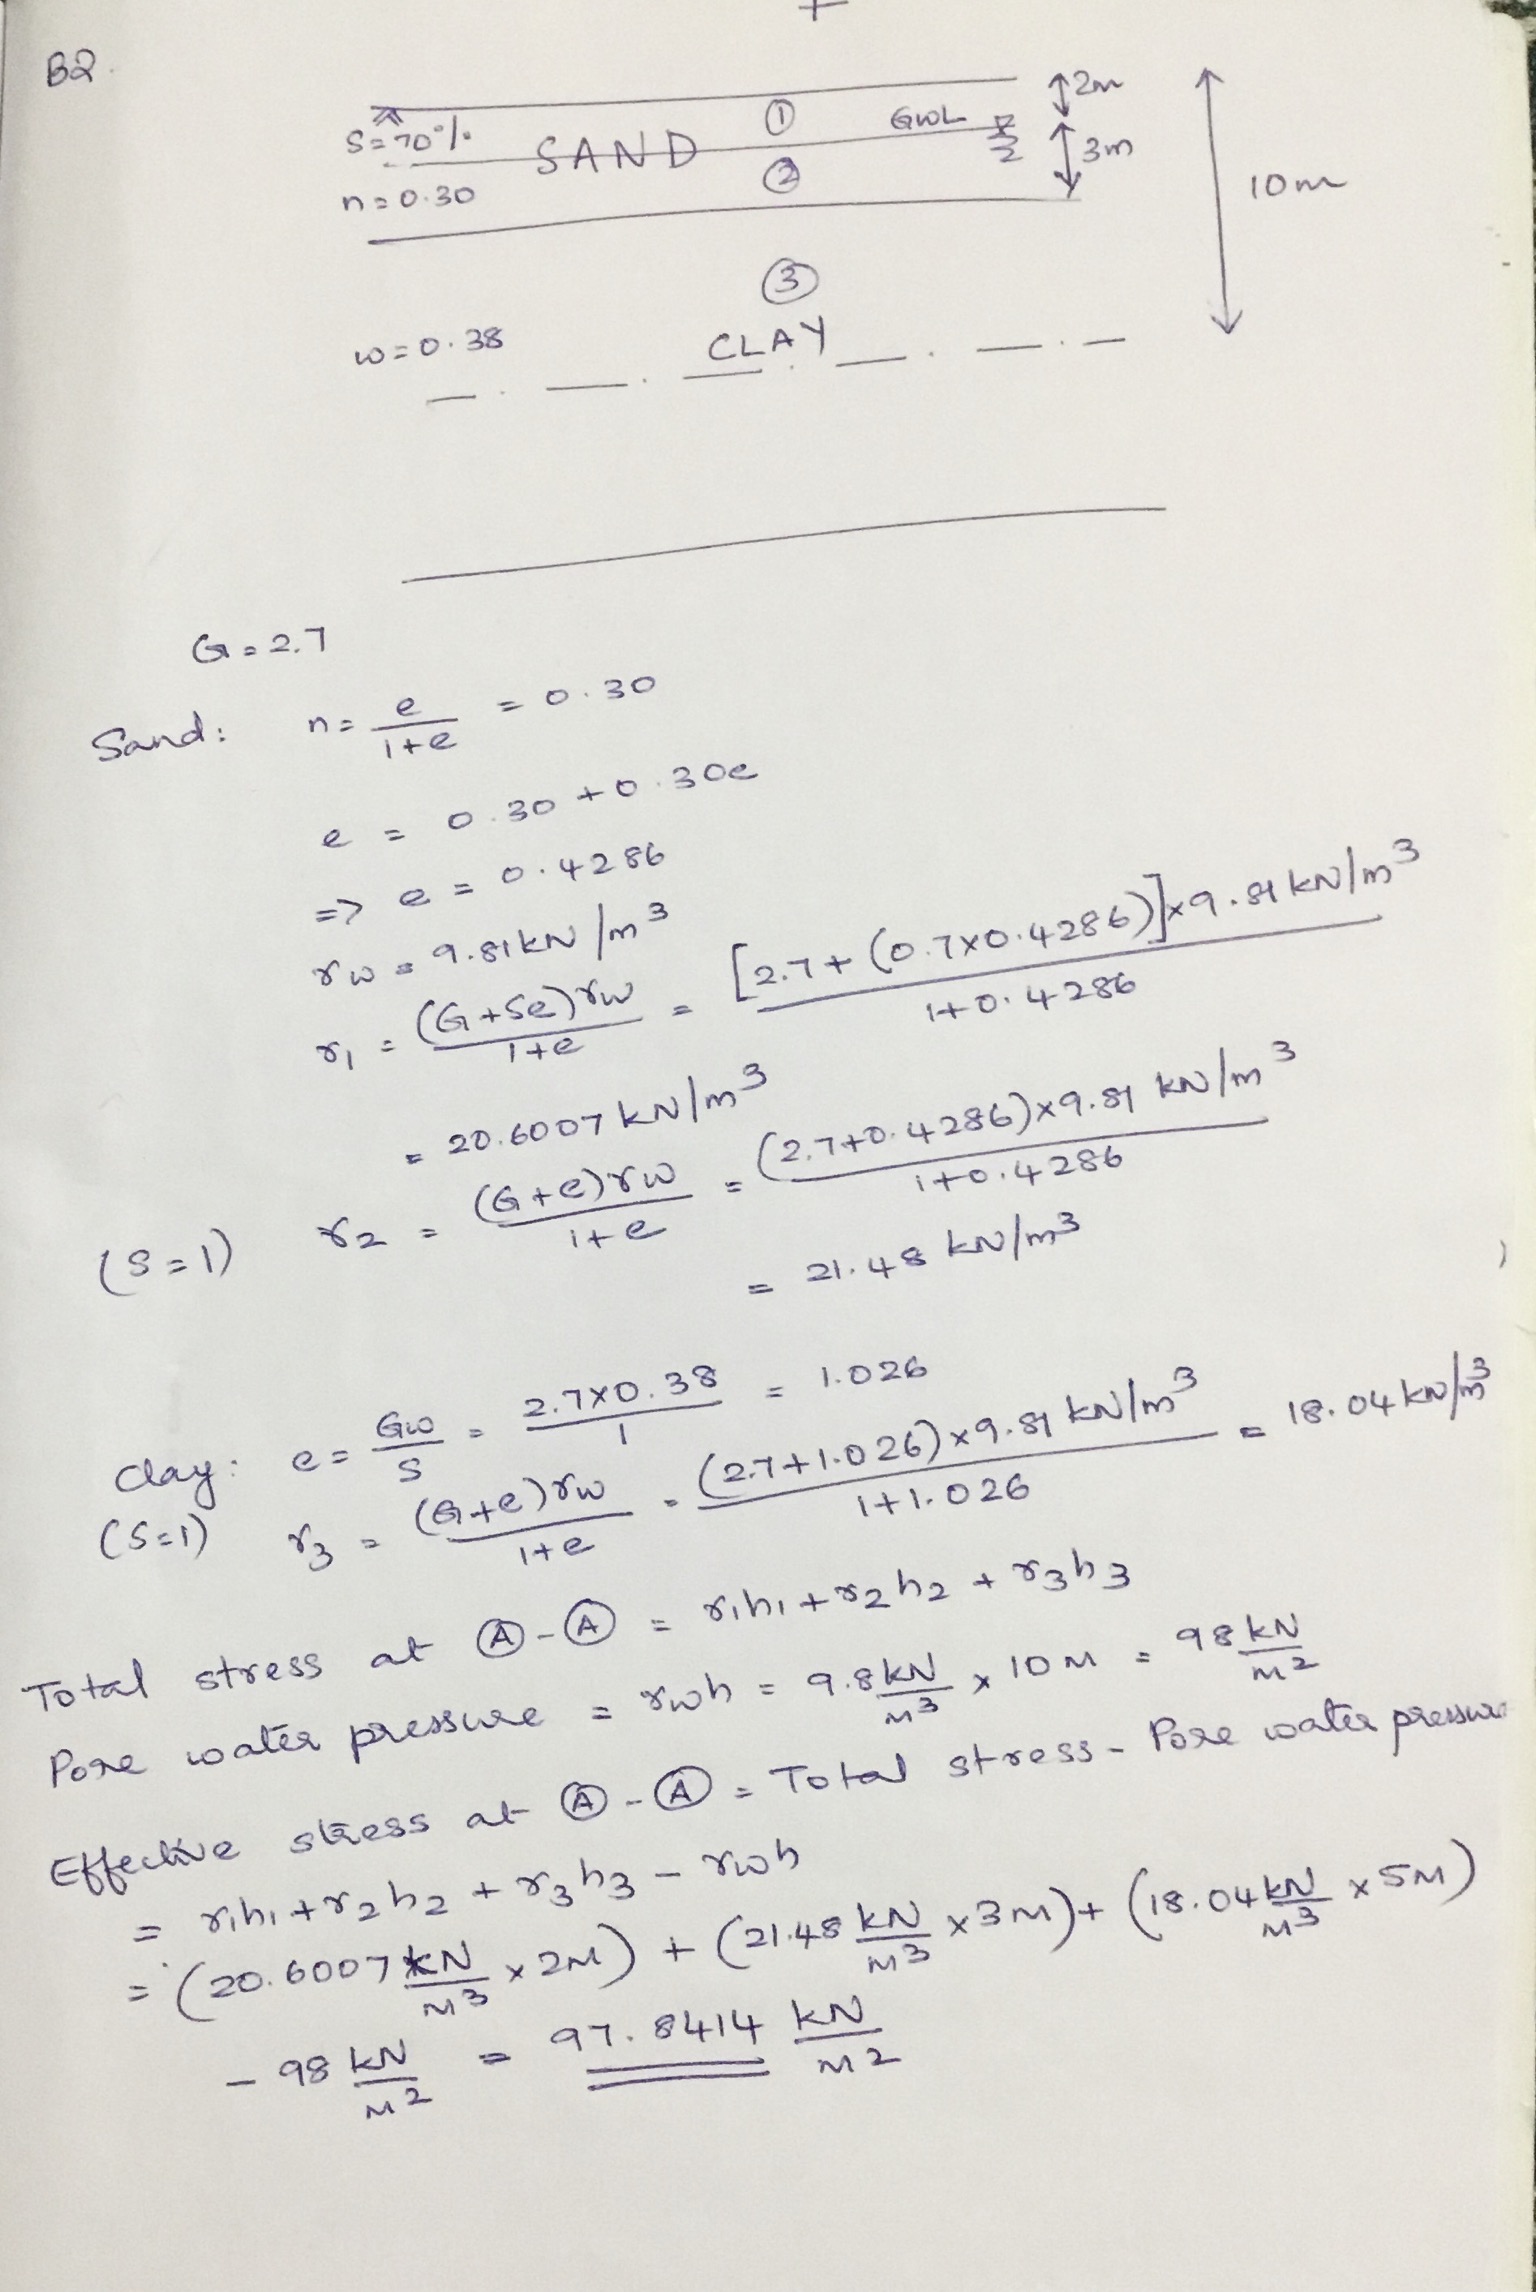 B2.
2m
S=70% SAND ① GWL
n=0.30 ② 3m
10m
③
w=0.38 CLAY
G=2.7
Sand: n= e/(1+e) = 0.30
e = 0.30+0.30e
=> e = 0.4286
γw = 9.81kN/m³
γ1 = (G+Se)γw/(1+e) = [2.7+(0.7×0.4286)]×9.81kN/m³/(1+0.4286)
= 20.6007 kN/m³
(S=1) γ2 = (G+e)γw/(1+e) = (2.7+0.4286)×9.81 kN/m³/(1+0.4286)
= 21.48 kN/m³
Clay: e= Gw/S = 2.7×0.38/1 = 1.026
(S=1) γ3 = (G+e)γw/(1+e) = (2.7+1.026)×9.81 kN/m³/(1+1.026) = 18.04kN/m³
Total stress at Ⓐ-Ⓐ = γ1h1+γ2h2+γ3h3
Pore water pressure = γwh = 9.8kN/M³ × 10M = 98kN/M²
Effective stress at Ⓐ-Ⓐ = Total stress - Pore water pressure
= γ1h1+γ2h2+γ3h3-γwh
= (20.6007 kN/M³ × 2M) + (21.48 kN/M³ ×3M)+ (18.04kN/M³ ×5M)
- 98 kN/M² = 97.8414 kN/M²